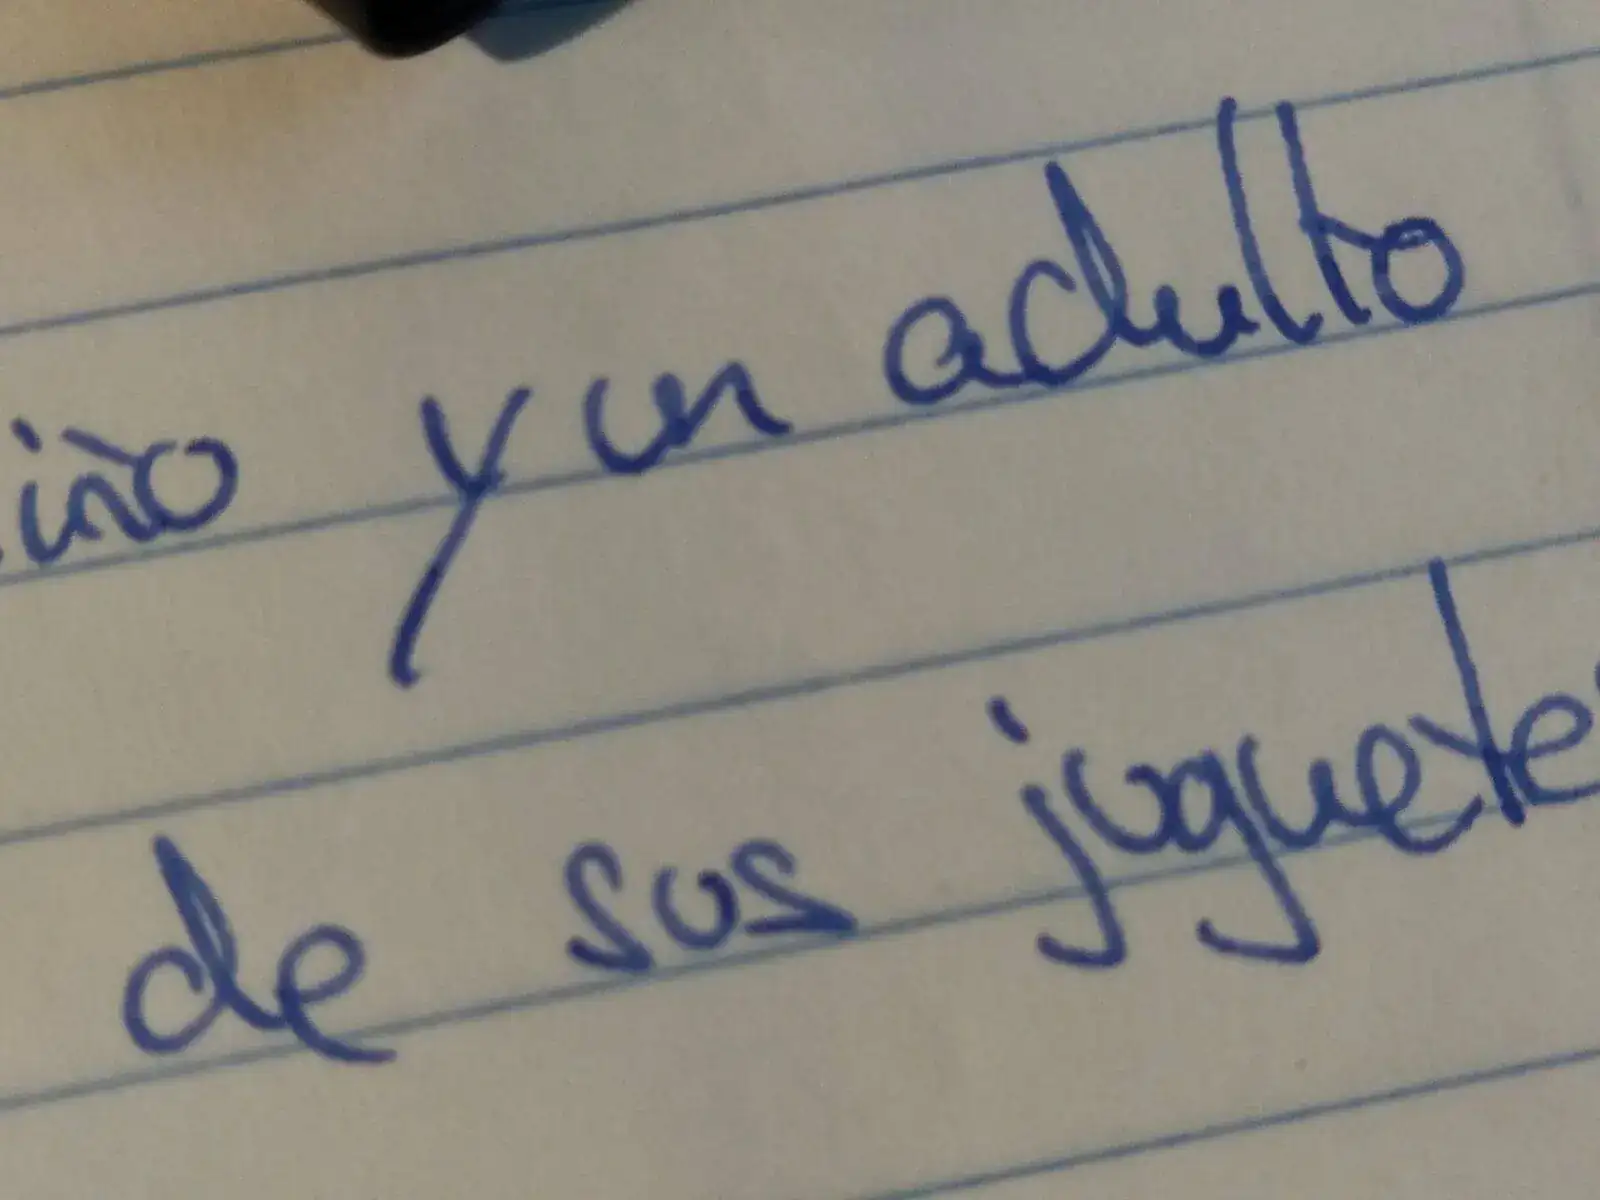 iño y un adulto
de sus juguetes